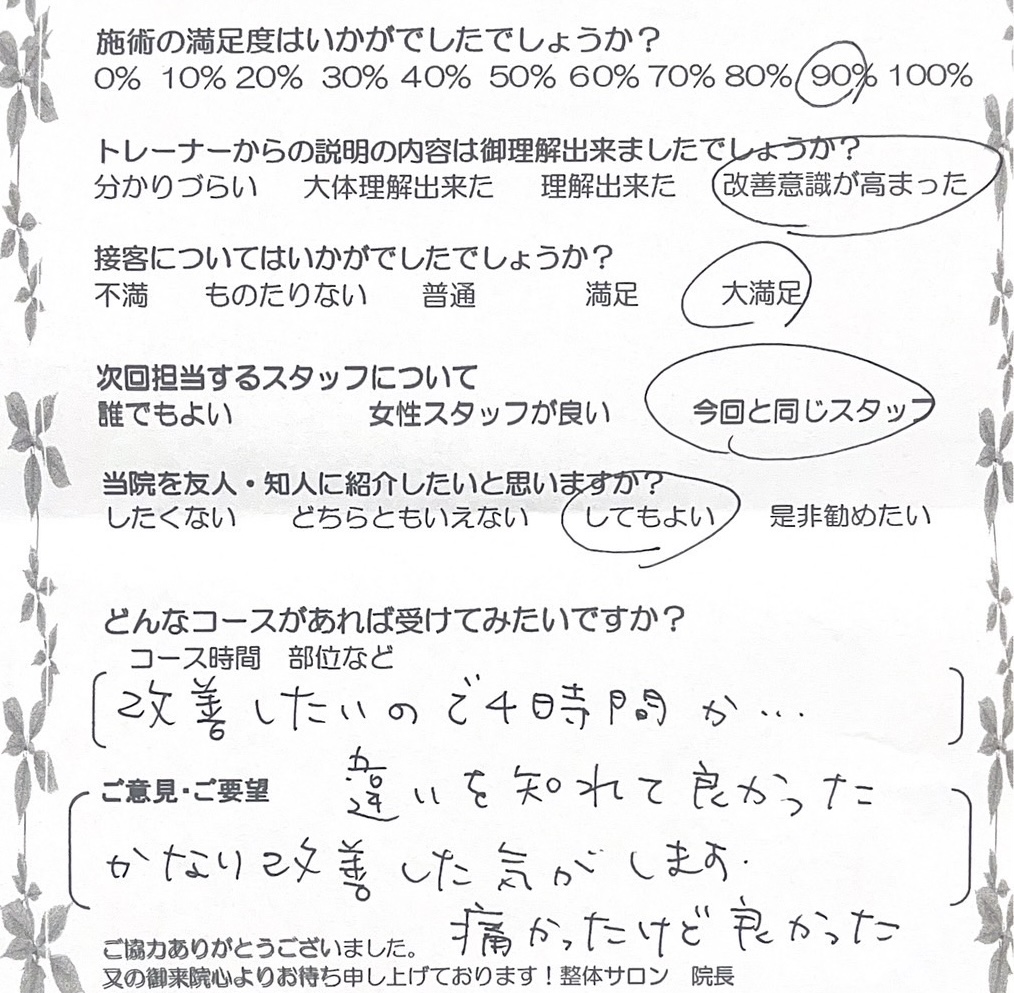 施術の満足度はいかがでしたでしょうか？
0% 10% 20% 30% 40% 50% 60% 70% 80% 90% 100%
トレーナーからの説明の内容は御理解出来ましたでしょうか？
分かりづらい 大体理解出来た 理解出来た 改善意識が高まった
接客についてはいかがでしたでしょうか？
不満 ものたりない 普通 満足 大満足
次回担当するスタッフについて
誰でもよい 女性スタッフが良い 今回と同じスタッフ
当院を友人・知人に紹介したいと思いますか？
したくない どちらともいえない してもよい 是非勧めたい
どんなコースがあれば受けてみたいですか？
コース時間 部位など
改善したいので4日時間か…
ご意見・ご要望 違いを知れて良かった
かなり改善した気がします.
痛かったけど良かった
ご協力ありがとうございました。
又の御来院心よりお待ち申し上げております！整体サロン 院長